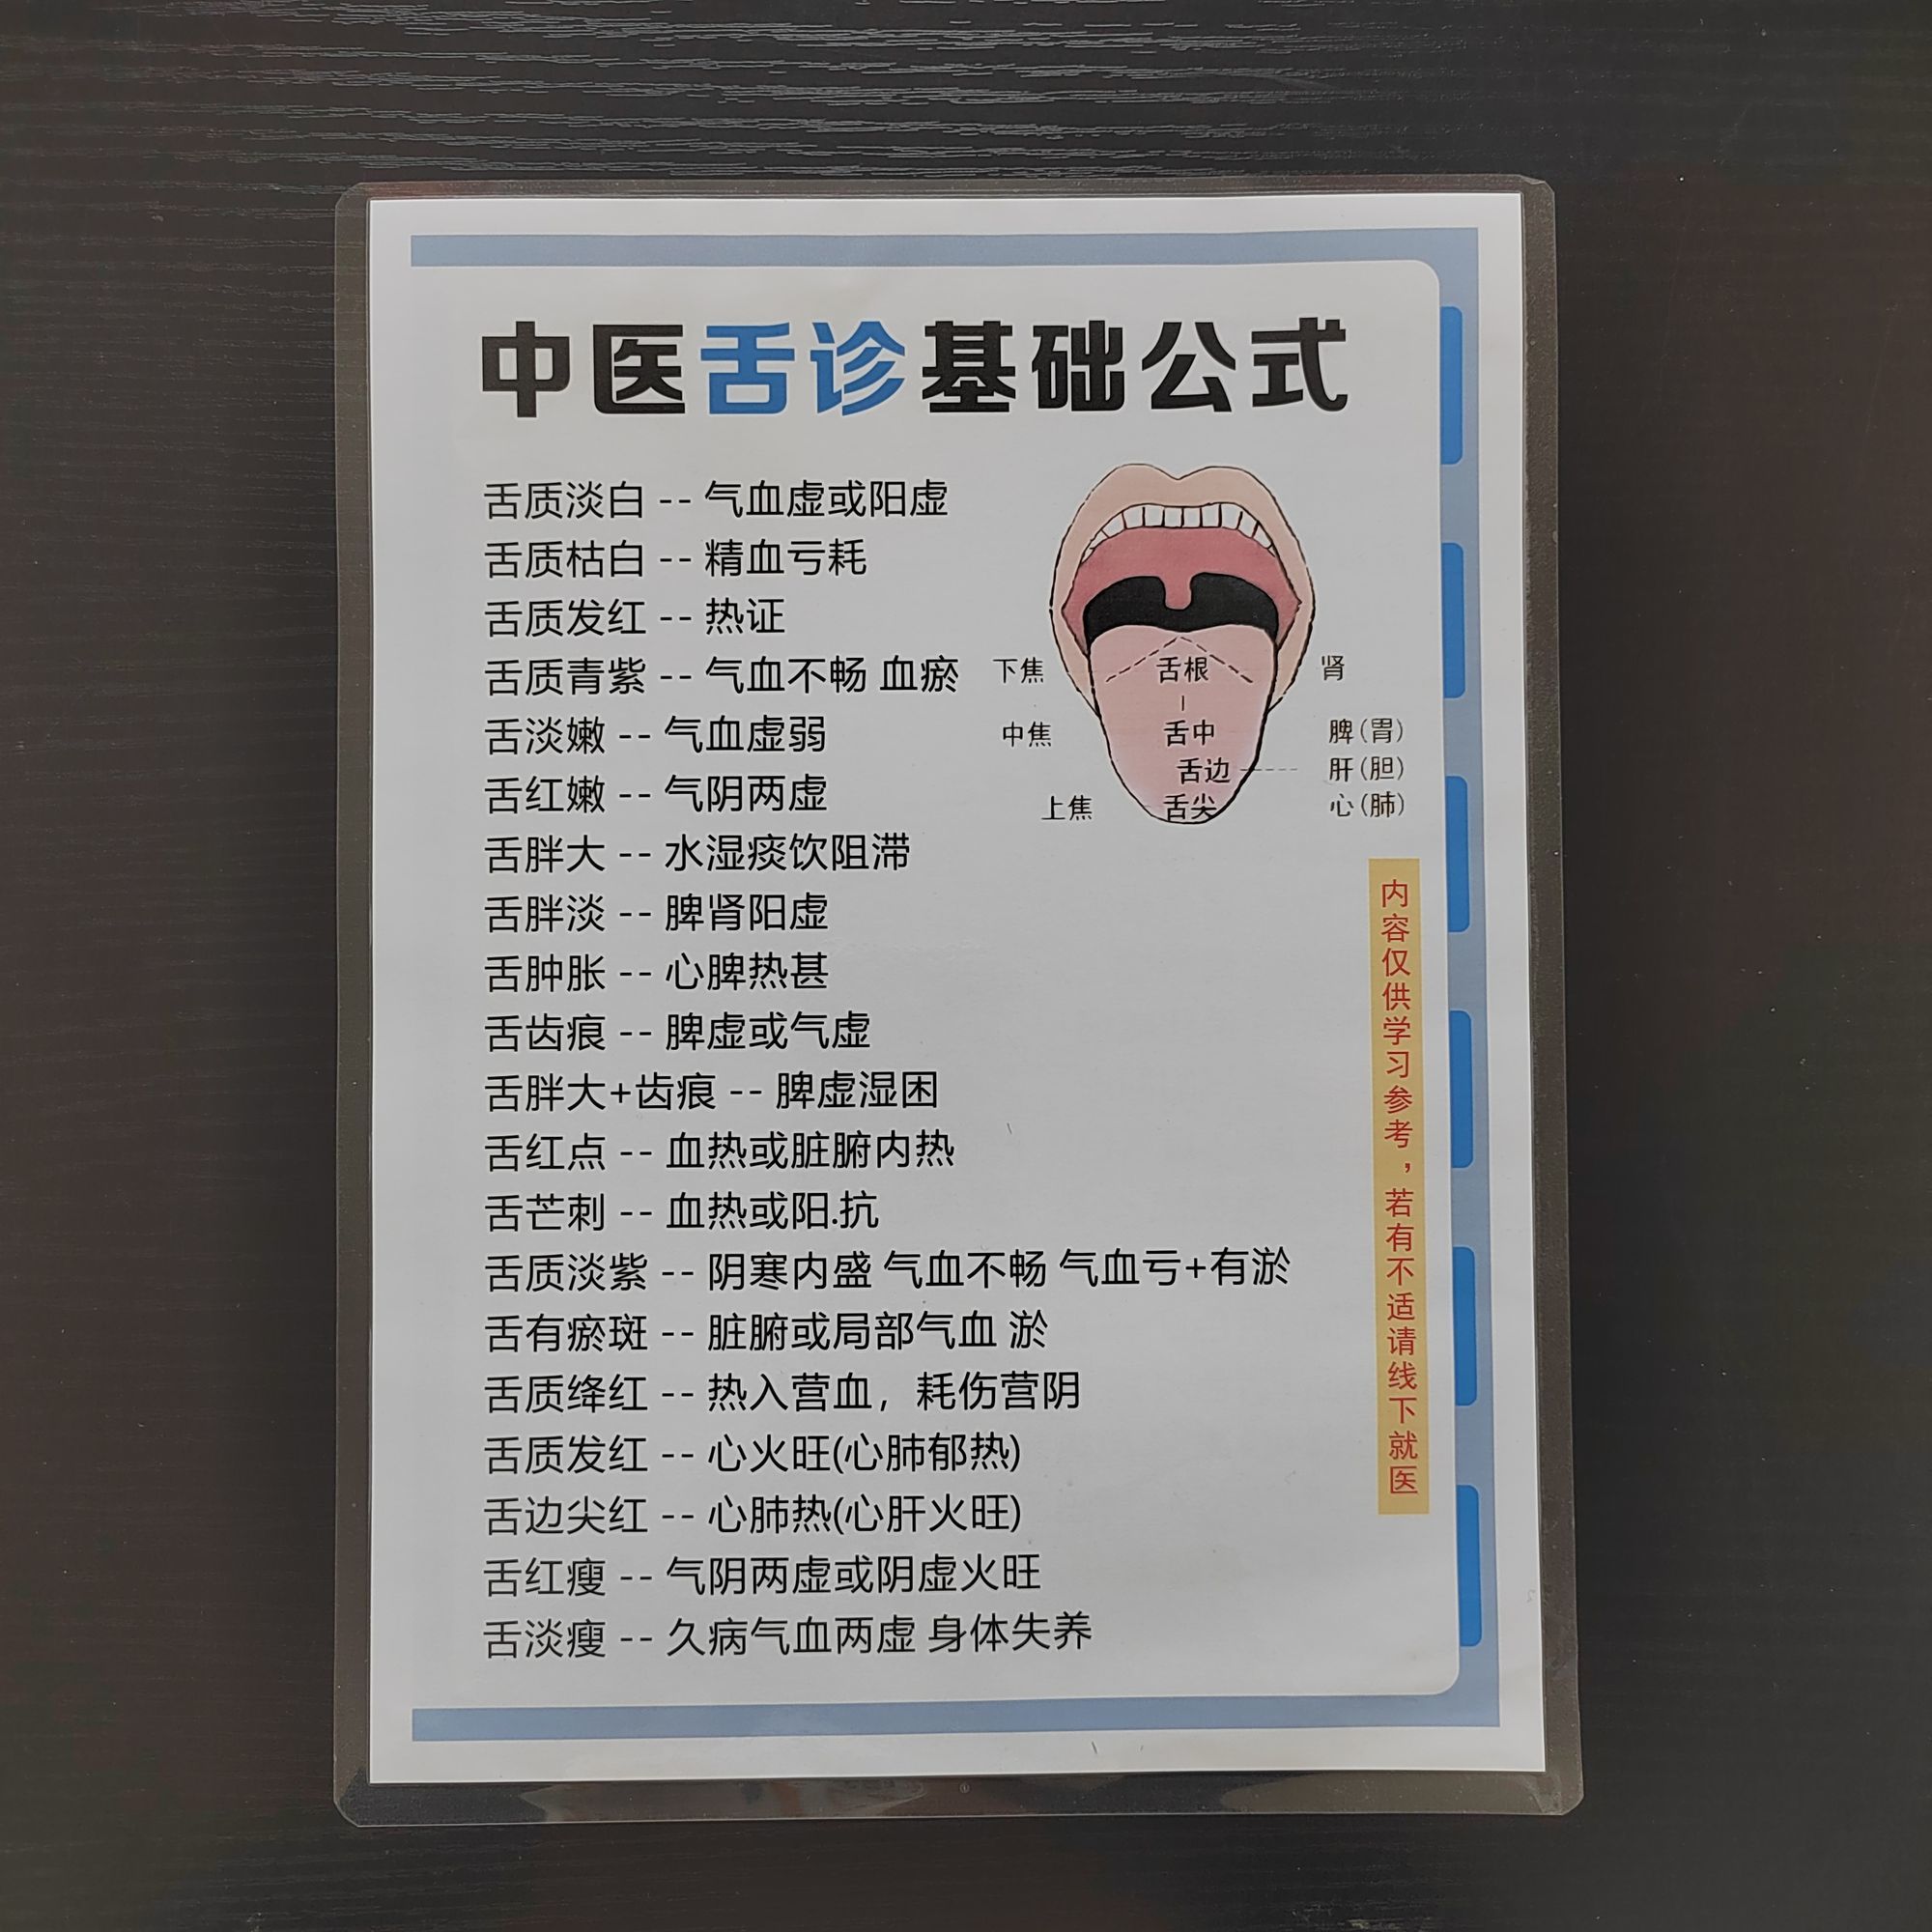 中医舌诊基础公式
舌质淡白 -- 气血虚或阳虚
舌质枯白 -- 精血亏耗
舌质发红 -- 热证
舌质青紫 -- 气血不畅 血瘀
舌淡嫩 -- 气血虚弱
舌红嫩 -- 气阴两虚
舌胖大 -- 水湿痰饮阻滞
舌胖淡 -- 脾肾阳虚
舌肿胀 -- 心脾热甚
舌齿痕 -- 脾虚或气虚
舌胖大+齿痕 -- 脾虚湿困
舌红点 -- 血热或脏腑内热
舌芒刺 -- 血热或阳.抗
舌质淡紫 -- 阴寒内盛 气血不畅 气血亏+有淤
舌有瘀斑 -- 脏腑或局部气血 淤
舌质绛红 -- 热入营血，耗伤营阴
舌质发红 -- 心火旺(心肺郁热)
舌边尖红 -- 心肺热(心肝火旺)
舌红瘦 -- 气阴两虚或阴虚火旺
舌淡瘦 -- 久病气血两虚 身体失养
下焦 舌根 肾
中焦 舌中 脾(胃)
舌边 肝(胆)
上焦 舌尖 心(肺)
内容仅供学习参考，若有不适请线下就医